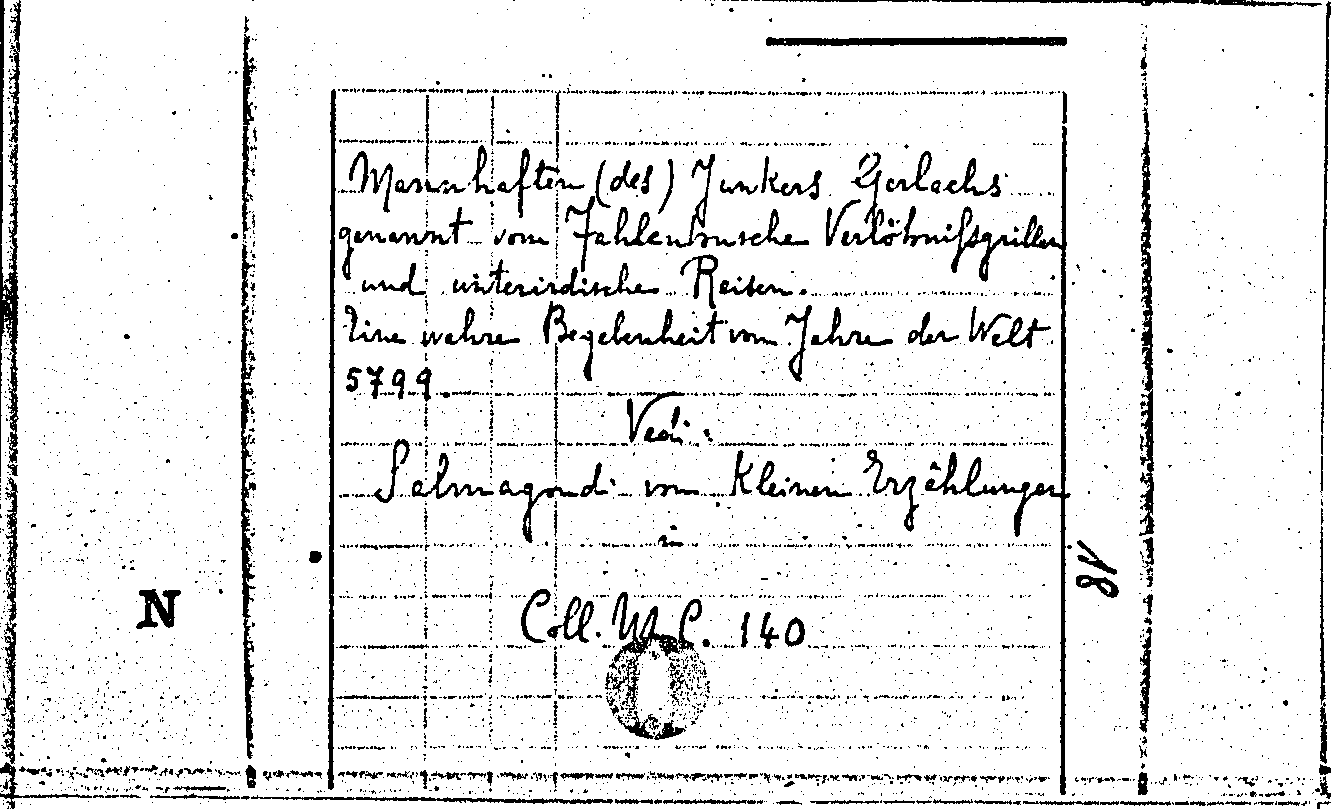 Mannhaften (des) Junkers Gerlachs
genannt vom Fahlenbusche Verlöbnißgrillen
und unterirdische Reisen.
Eine wahre Begebenheit vom Jahre der Welt
5799.
Vedi:
Salmagondi von kleinen Erzählungen
in
Coll. W. C. 140
N
18